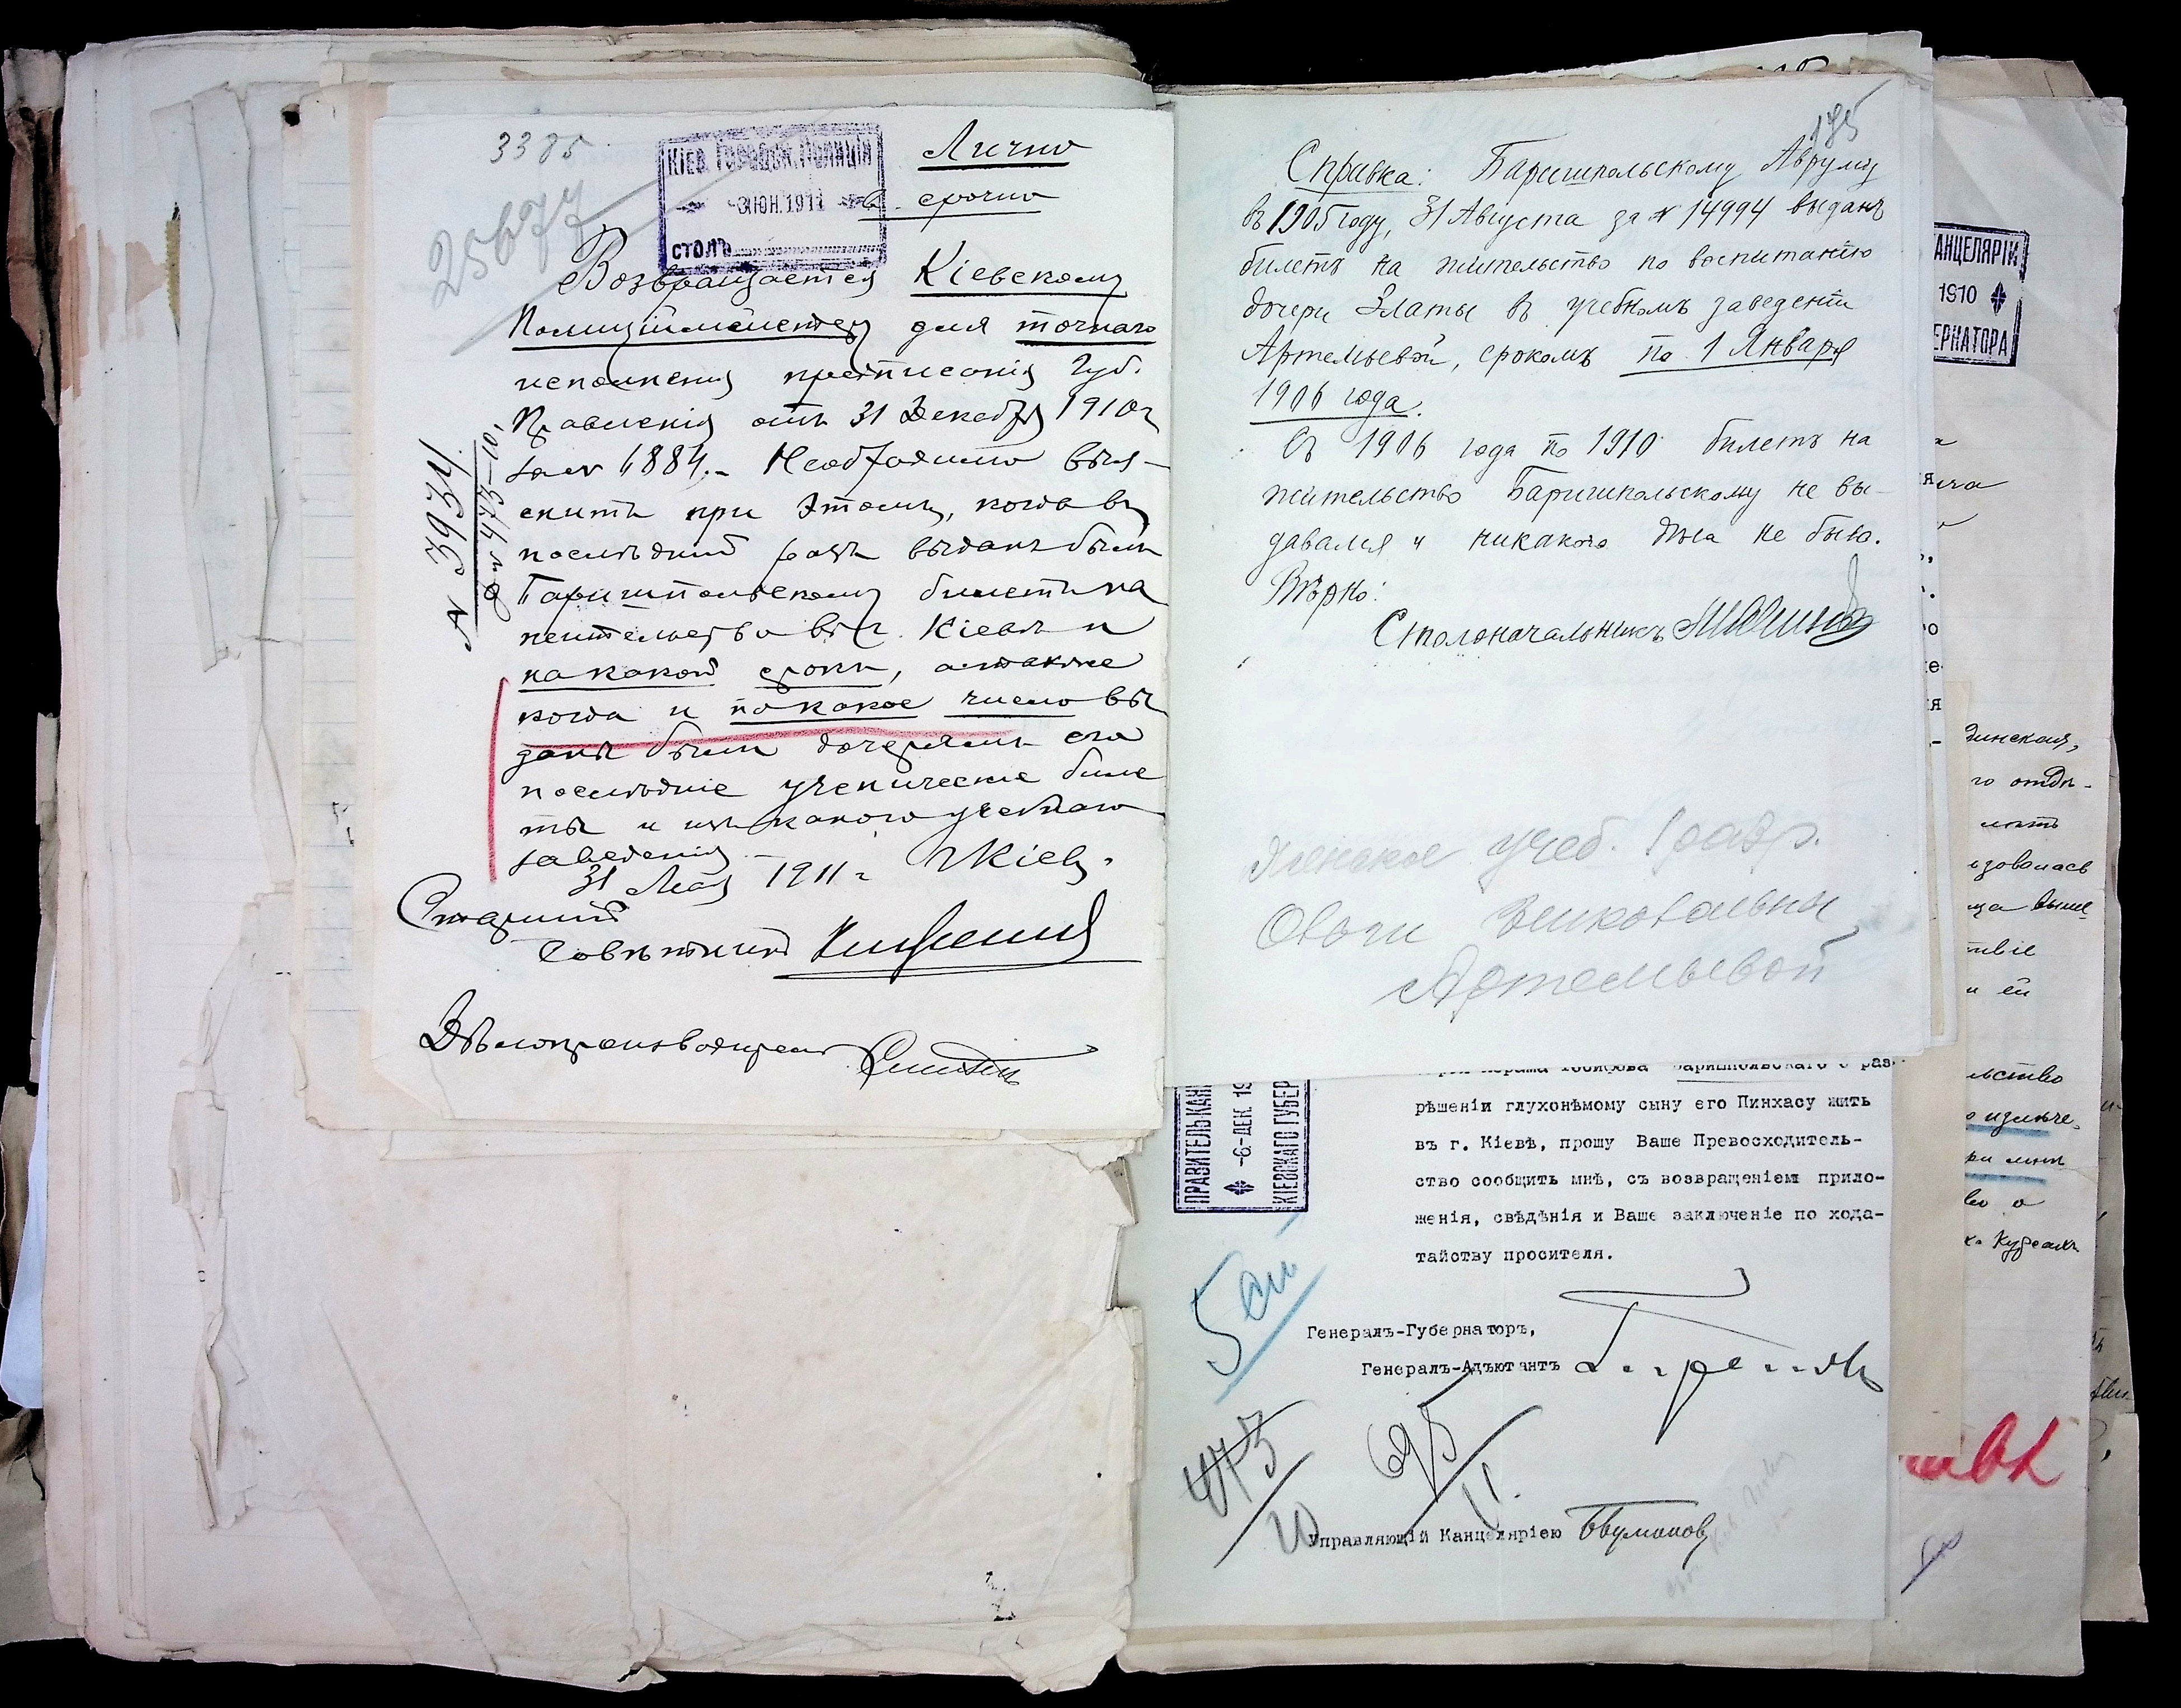 3385
25677
КІЕВ. ГОРОДСК. ПОЛИЦІЯ
-3 ІЮН. 1911
СТОЛЪ
Лично
и срочно
Возвращается Кіевскому
Полиціймейстеру для точнаго
исполненія предписанія Губ.
Правленія отъ 31 Декабря 1910 г.
за № 6884.- Необходимо выя-
снить при этомъ, когда въ
послѣдній разъ выданъ былъ
Баришпольскому билетъ на
жительство въ г. Кіевѣ и
на какой срокъ, а также
когда и по какое число вы
даны были дочерямъ его
послѣдніе ученическіе биле
ты и изъ какого учебнаго
заведенія.-
31 Мая 1911 г. г. Кіевъ.
Старшій
Совѣтникъ
Дѣлопроизводитель
№ 3934
473-10.
185
Справка: Баришпольскому Аврумѣ
въ 1905 году, 31 Августа за № 14994 выданъ
билетъ на жительство по воспитанію
дочери Златы въ учебномъ заведеніи
Артемьевой, срокомъ по 1 Января
1906 года.
Съ 1906 года по 1910 билетъ на
жительство Баришпольскому не вы-
давался и никакого дѣла не было.
Вѣрно:
Столоначальникъ
Женское учеб. 1 разр.
Ольги Николаевны
Артемьевой
АНЦЕЛЯРІИ
1910
ЕРНАТОРА
ПРАВИТЕЛЬ КАН
-6-ДЕК. 19
КІЕВСКАГО ГУБЕР
рѣшеніи глухонѣмому сыну его Пинхасу жить
въ г. Кіевѣ, прошу Ваше Превосходитель-
ство сообщить мнѣ, съ возвращеніемъ прило-
женія, свѣдѣнія и Ваше заключеніе по хода-
тайству просителя.
Генералъ-Губернаторъ,
Генералъ-Адъютантъ
473
10
695
11.
Управляющій Канцеляріею
зинская,
го отдѣ-
зовалась
ща выше
твіе
и ей
льство